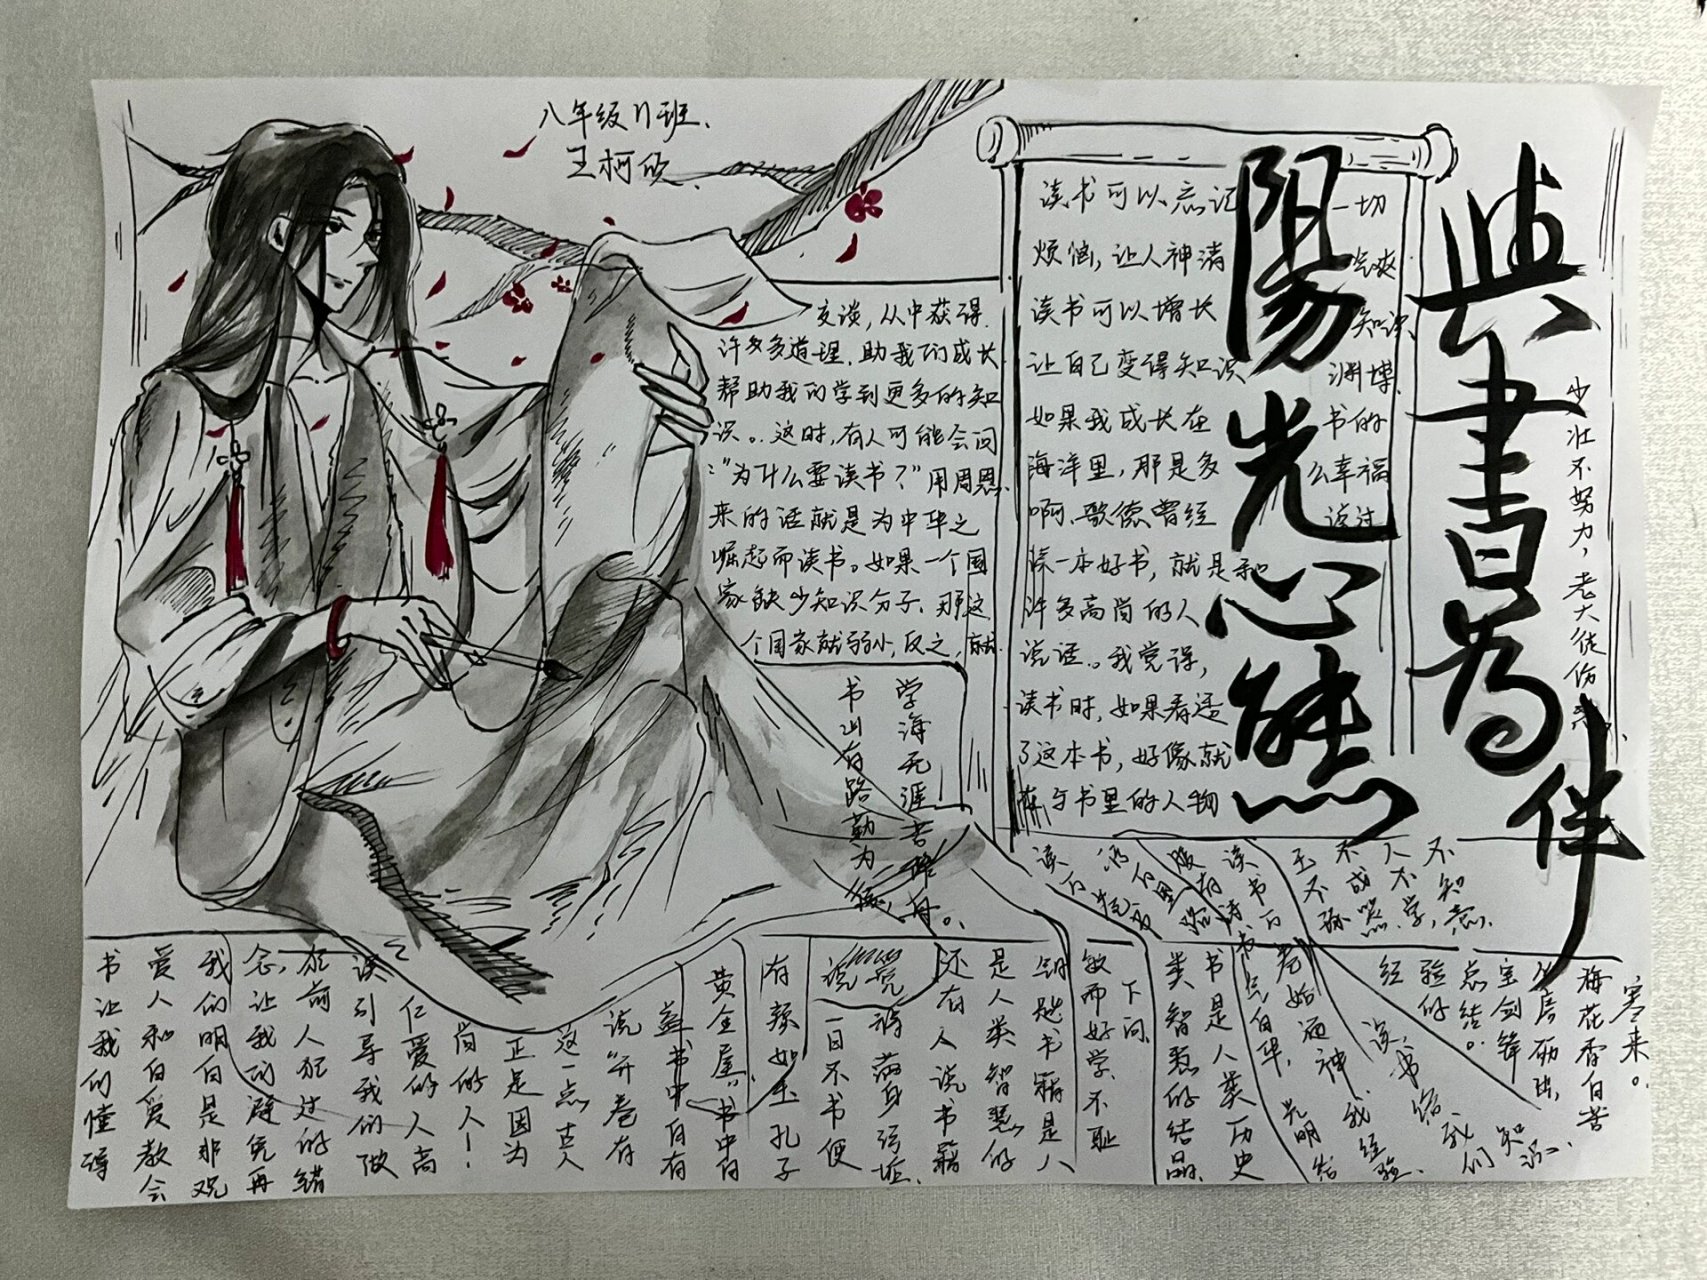 八年级11班
王柯欣
與書為伴
陽光心態
少壮不努力，老大徒伤悲
读书可以忘记一切
烦恼，让人神清气爽
读书可以增长知识，
让自己变得知识渊博.
如果我成长在书的
海洋里，那是多么幸福
啊，歌德曾经说过
读一本好书，就是和
许多高尚的人
说话。我觉得，
读书时，如果看透
了这本书，好像就
在与书里的人物
交谈，从中获得
许多多道理，助我们成长
帮助我们学到更多的知
识。这时，有人可能会问
:“为什么要读书？”用周恩
来的话就是为中华之
崛起而读书。如果一个国
家缺少知识分子，那这
个国家就弱小，反之，就
书山有路勤为径
学海无涯苦作舟。
读万卷书
行万里路
腹有诗书气自华
读书万卷始通神
玉不
不成
人不学，
不知
敏而好学，不耻
下问
书是人类历史
类智慧的结晶
梅花香自苦
寒来。
宝剑锋
读书给我们知识
经验的
点结。
书籍是人
是人类智慧的
还有人说书籍
一日不书便
有颜如玉孔子
黄金屋”书中自
盖书中自有
说“开卷有
这一点古人
正是因为
尚的人！
仁爱的人高
读引导我们做
犯前人犯过的错
念，让我们避免再
我们明白是非观
爱人和自爱教会
书让我们懂得